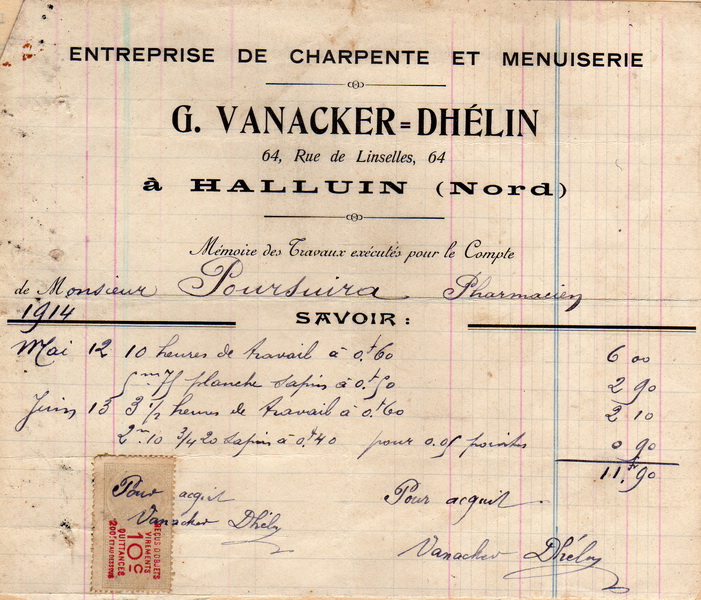 ENTREPRISE DE CHARPENTE ET MENUISERIE
G. VANACKER=DHÉLIN
64, Rue de Linselles, 64
à HALLUIN (Nord)
Mémoire des Travaux exécutés pour le Compte
de Monsieur Poursuira Pharmacien
1914
SAVOIR :
Mai 12 10 heures de travail à 0.f60 6 00
5m 75 planche sapin à 0.f50 2 90
Juin 13 3 1/2 heures de travail à 0.f60 2 10
2m.10 3/4 20 sapin à 0.f40 pour 0.05 pointes 0 90
11.f90
Pour acquit
Vanacker Dhélin
Pour acquit
Vanacker Dhélin
REÇUS D'OBJETS
VIREMENTS
10c
QUITTANCES